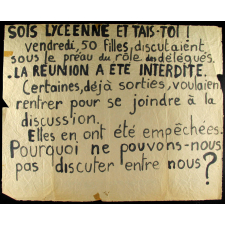 SOIS LYCEENNE ET TAIS-TOI !
vendredi, 50 filles, discutaient
sous le préau du rôle des délégués.
. LA REUNION A ETE INTERDITE.
Certaines, déjà sorties, voulaient
rentrer pour se joindre à la
discussion.
Elles en ont été empêchées.
Pourquoi ne pouvons-nous
pas discuter entre nous ?